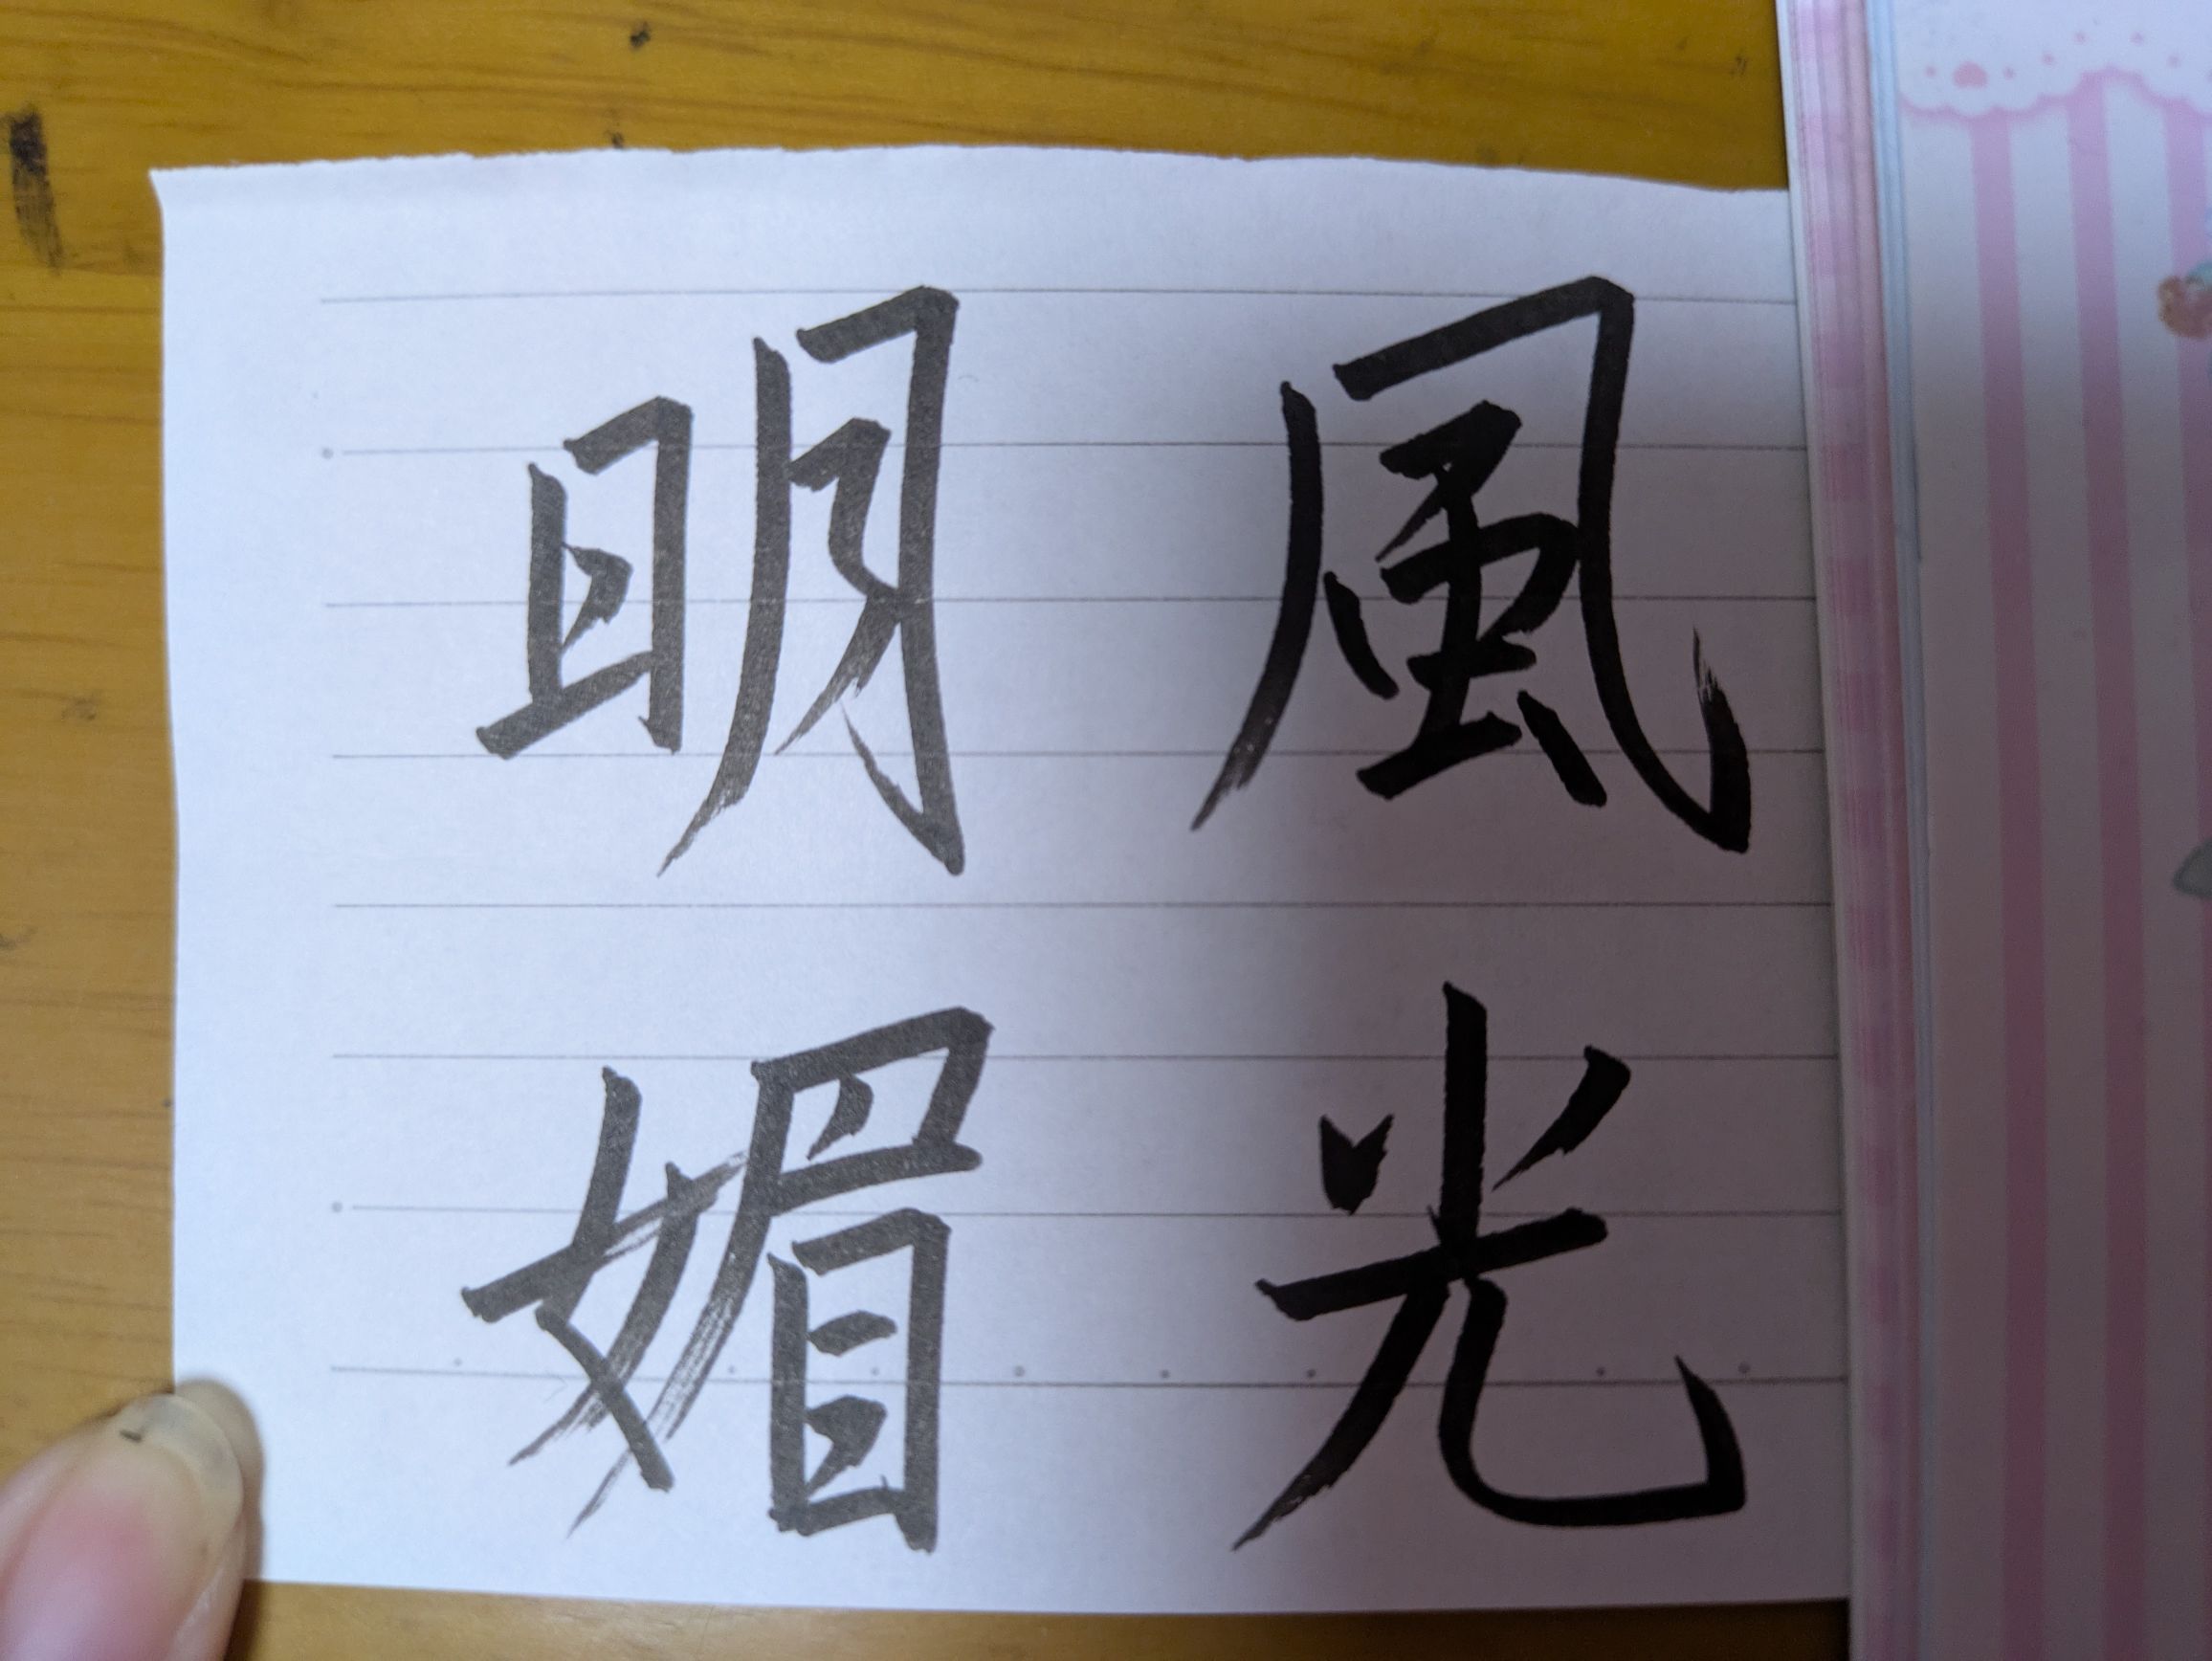 風光
明媚